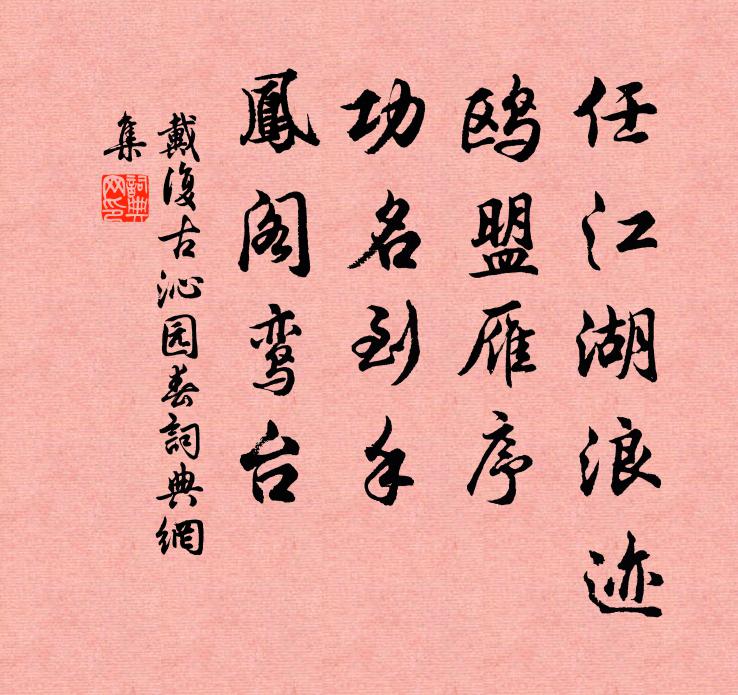 任江湖浪迹
鸥盟雁序
功名到手
鳳阁鸾台
戴復古沁园春詞典網
集
詞典
网印